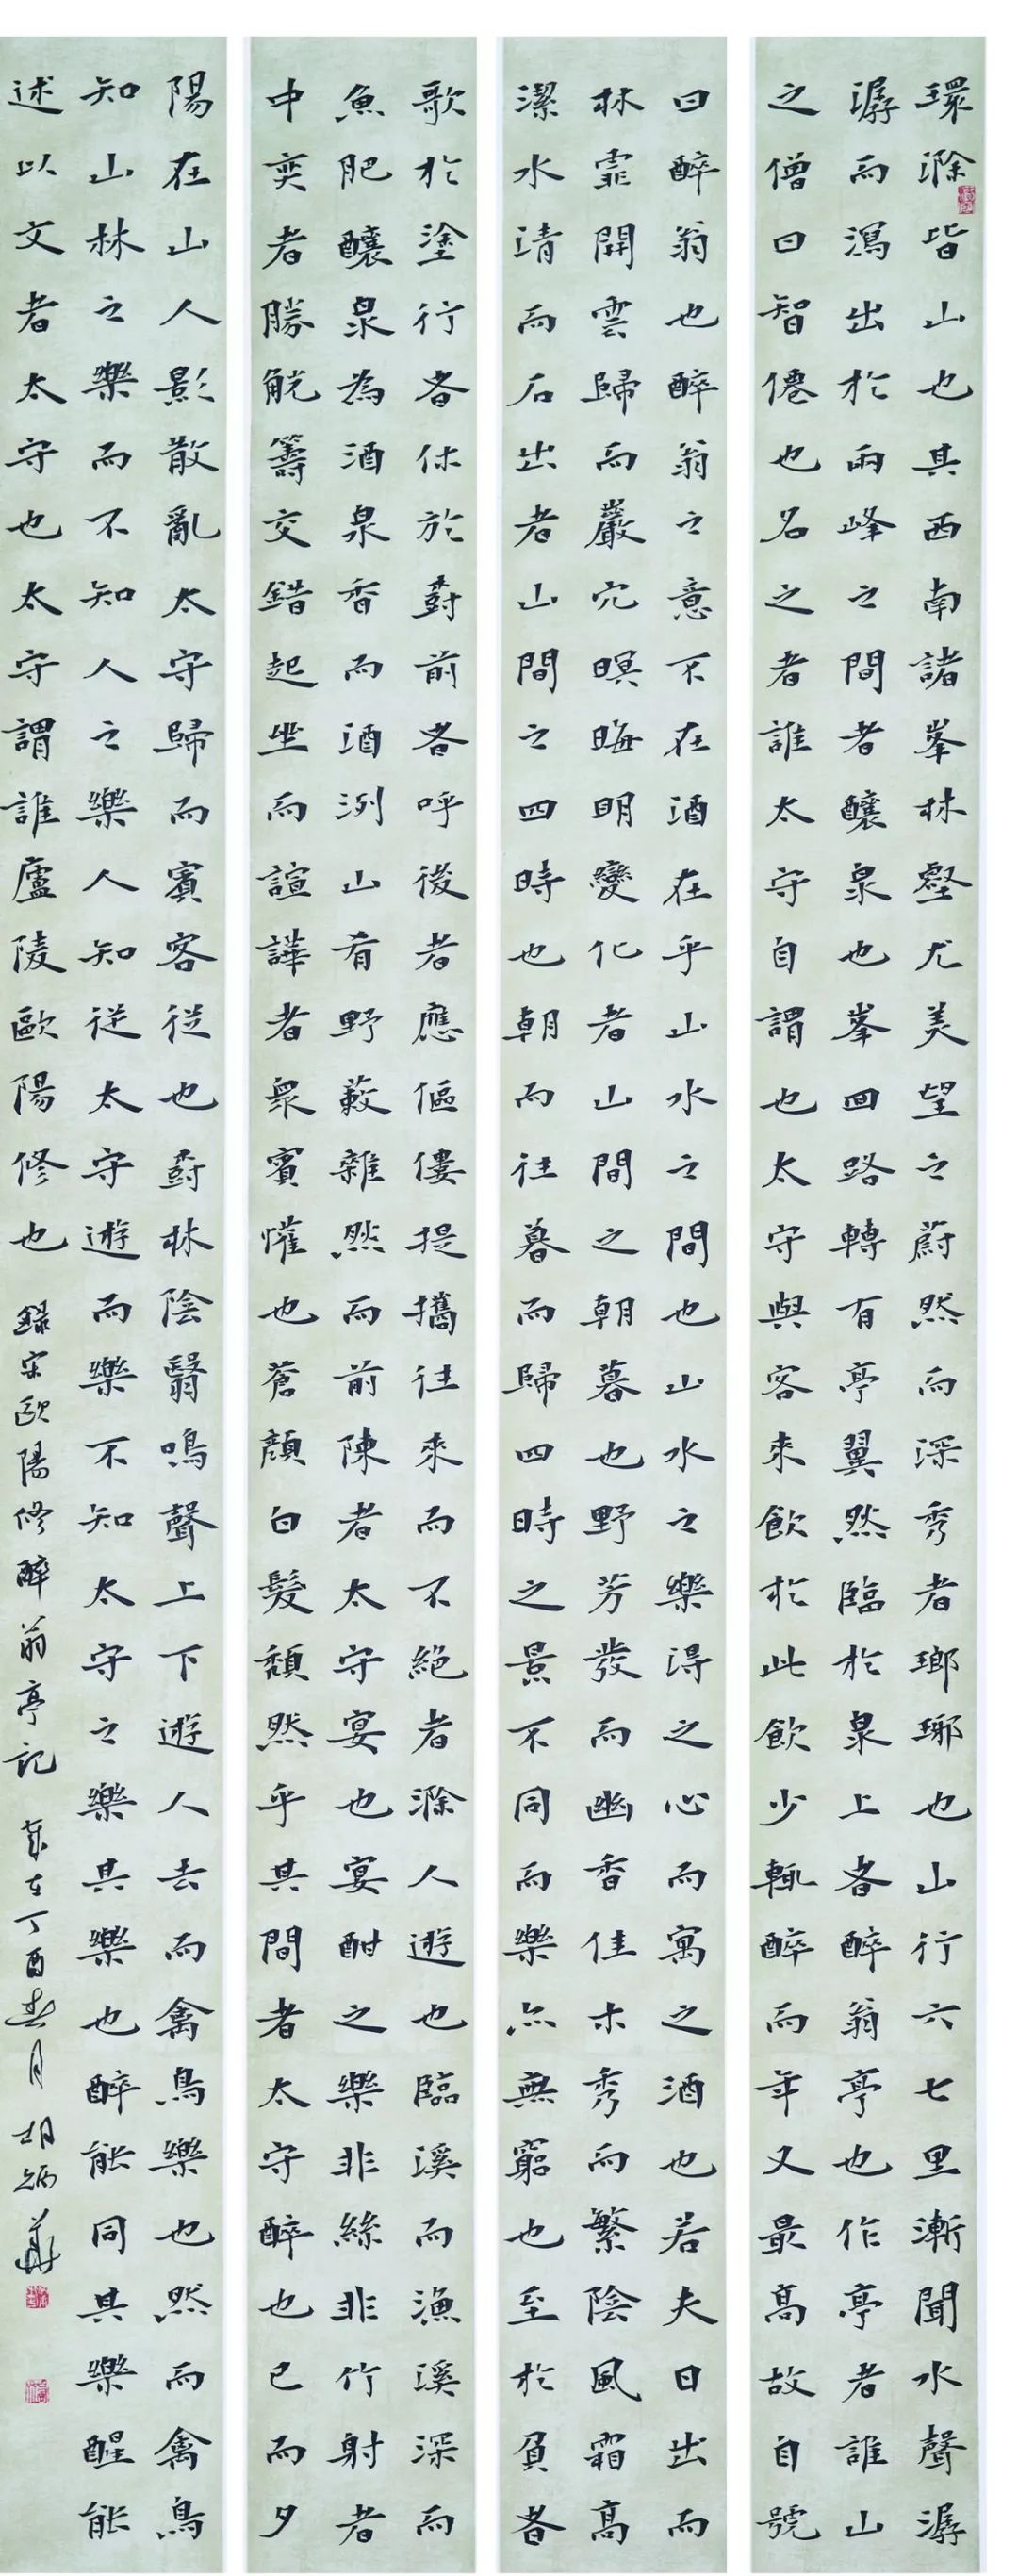 環滁皆山也其西南諸峯林壑尤美望之蔚然而深秀者瑯琊也山行六七里漸聞水聲潺
潺而瀉出於兩峰之間者釀泉也峯回路轉有亭翼然臨於泉上者醉翁亭也作亭者誰山
之僧曰智僊也名之者誰太守自謂也太守與客來飲於此飲少輒醉而年又最高故自號
曰醉翁也醉翁之意不在酒在乎山水之間也山水之樂得之心而寓之酒也若夫日出而
林霏開雲歸而巖穴暝晦明變化者山間之朝暮也野芳發而幽香佳木秀而繁陰風霜高
潔水清而石出者山間之四時也朝而往暮而歸四時之景不同而樂亦無窮也至於負者
歌於塗行者休於樹前者呼後者應傴僂提攜往來而不絕者滁人遊也臨溪而漁溪深而
魚肥釀泉為酒泉香而酒洌山肴野蔌雜然而前陳者太守宴也宴酣之樂非絲非竹射者
中奕者勝觥籌交錯起坐而諠譁者眾賓懽也蒼顏白髮頹然乎其間者太守醉也已而夕
陽在山人影散亂太守歸而賓客從也樹林陰翳鳴聲上下遊人去而禽鳥樂也然而禽鳥
知山林之樂而不知人之樂人知從太守遊而樂不知太守之樂其樂也醉能同其樂醒能
述以文者太守也太守謂誰廬陵歐陽修也 錄宋歐陽修醉翁亭記 歲在丁酉春月 胡炳華